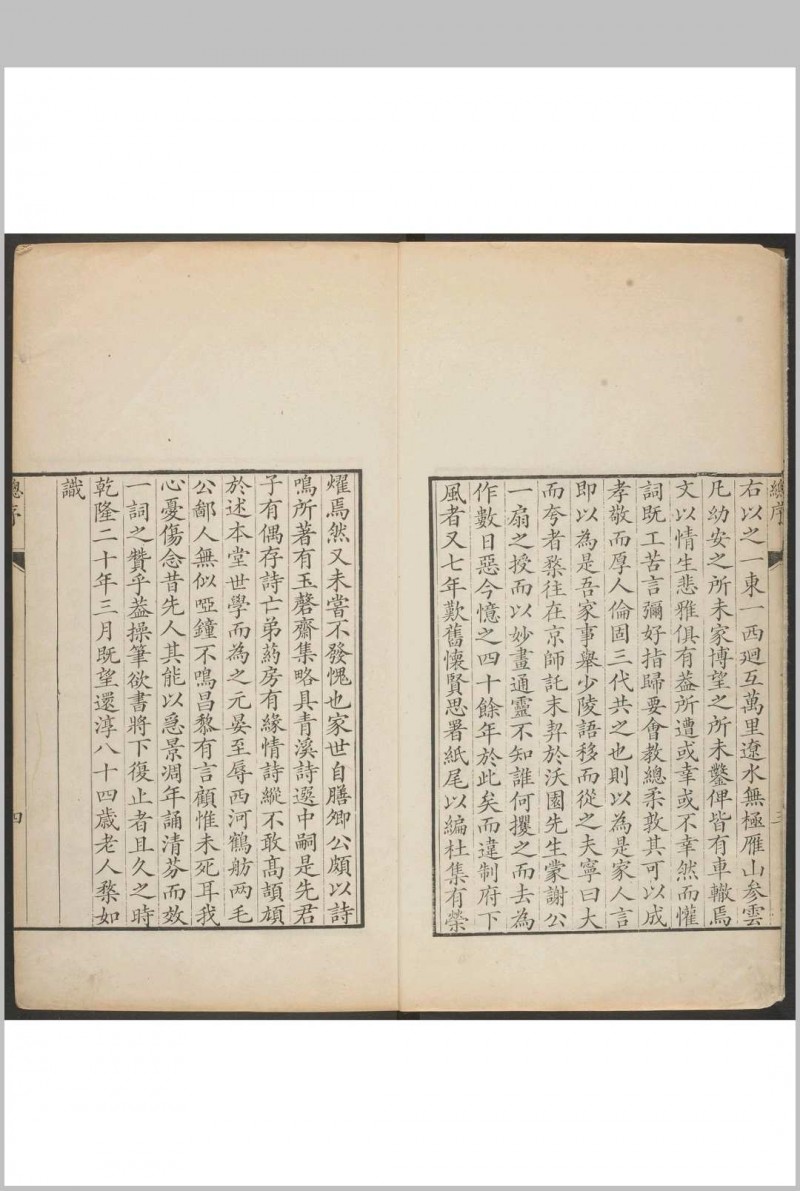 總序
三
右以之一東一西迴互萬里遼水無極雁山參雲
凡幼安之所未家博望之所未鑿俾皆有車轍焉
文以情生悲雅俱有葢所遭或幸或不幸然而懽
詞既工苦言彌好指歸要會教總柔敦其可以成
孝敬而厚人倫固三代共之也則以為是家人言
即以為是吾家事舉少陵語移而從之夫寧曰大
而夸者棃往在京師託末契於沃園先生蒙謝公
一扇之授而以妙畫通靈不知誰何攫之而去為
作數日惡今憶之四十餘年於此矣而違制府下
風者又七年歎舊懷賢思署紙尾以編杜集有榮
燿焉然又未嘗不發愧也家世自膳卿公頗以詩
鳴所著有玉磬齋集略具青溪詩選中嗣是先君
子有偶存詩亡弟葯房有緣情詩縱不敢高頡頏
於述本堂世學而為之元晏至辱西河鶴舫两毛
公鄙人無似啞鐘不鳴昌黎有言顧惟未死耳我
心憂傷念昔先人其能以急景凋年誦清芬而效
一詞之贊乎葢操筆欲書將下復止者且久之時
乾隆二十年三月既望還淳八十四歲老人棃如
識
總序
四